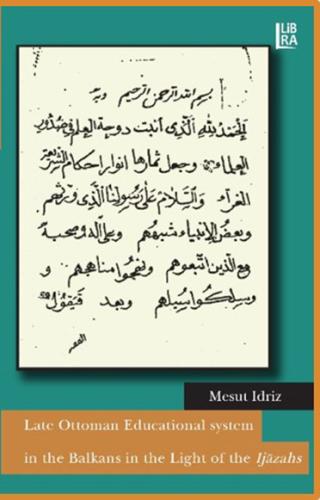 LiB
RA
بسم الله الرحمن الرحيم وبه
الحمد لله الذى أنبت دوحة العلم فى صدور
العلماء وجعل ثمارها انوار احكام الشريعة
الغراء والسلام على رسولنا الذى ورثهم
وبعض الانبياء شبههم وعلى اله وصحبه
مع الذين اتبعوهم ونهجوا مناهجهم و
وسلكوا سبيلهم وبعد فيقول
الفقير
Mesut Idriz
Late Ottoman Educational system
in the Balkans in the Light of the Ijāzahs